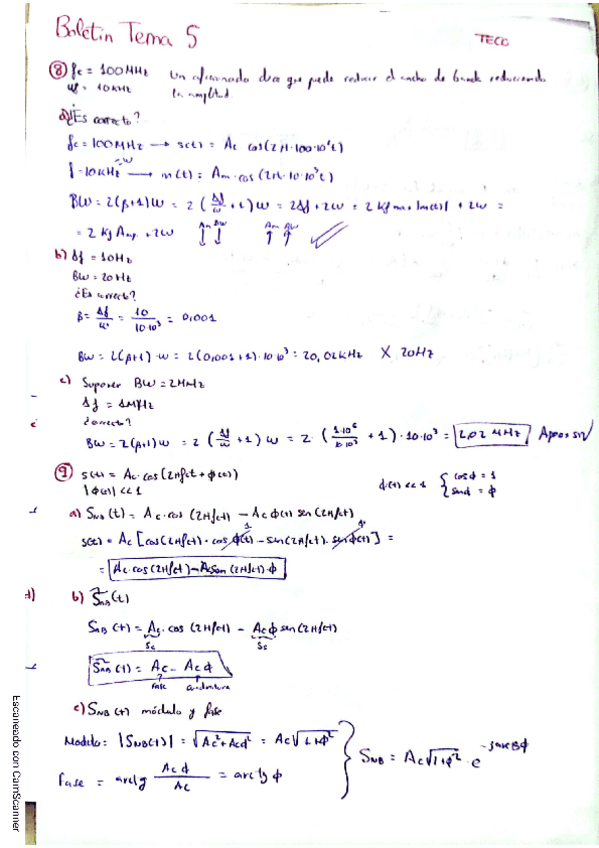 Boletín Tema 5
TECO
⑧ fc = 100MHz Un aficionado dice que puede reducir el ancho de banda reduciendo
W = 10KHz la amplitud.
a) ¿Es correcto?
fc = 100MHz → s(t) = Ac cos(2π·100·10⁶t)
f = 10KHz = W → m(t) = Am·cos(2π·10·10³t)
BW = 2(β+1)W = 2(Δf/W + 1)W = 2Δf + 2W = 2 Kf max |m(t)| + 2W =
= 2 Kf Am + 2W Am↓ BW↓ Am↑ BW↑
b) Δf = 10Hz
BW = 20Hz
¿Es correcto?
β = Δf/W = 10/10·10³ = 0,001
BW = 2(β+1)·W = 2(0,001+1)·10·10³ = 20,02KHz X 20Hz
c) Suponer BW = 2MHz
Δf = 1MHz
¿correcto?
BW = 2(β+1)W = 2(Δf/W + 1)W = 2·(1·10⁶/10·10³ + 1)·10·10³ = 2,02 MHz Aprox sí
⑨ s(t) = Ac·cos(2πfct + φ(t))
|φ(t)| << 1 φ(t) << 1 { cosφ = 1
senφ = φ
a) SNB(t) = Ac·cos(2πfct) - Acφ(t) sen(2πfct)
s(t) = Ac[cos(2πfct)·cosφ(t) - sen(2πfct)·senφ(t)] =
= Ac·cos(2πfct) - Ac sen(2πfct)·φ
b) S̃NB(t)
SNB(t) = Ac·cos(2πfct) - Acφ sen(2πfct)
Sc Ss
S̃NB(t) = Ac - Acφ
fase cuadratura
c) SNB(t) módulo y fase
Modulo: |SNB(t)| = √(Ac² + Acφ²) = Ac√(1+φ²)
Fase = arctg Acφ/Ac = arctg φ
SNB = Ac√(1+φ²)·e^(-jarctgφ)
Escaneado con CamScanner